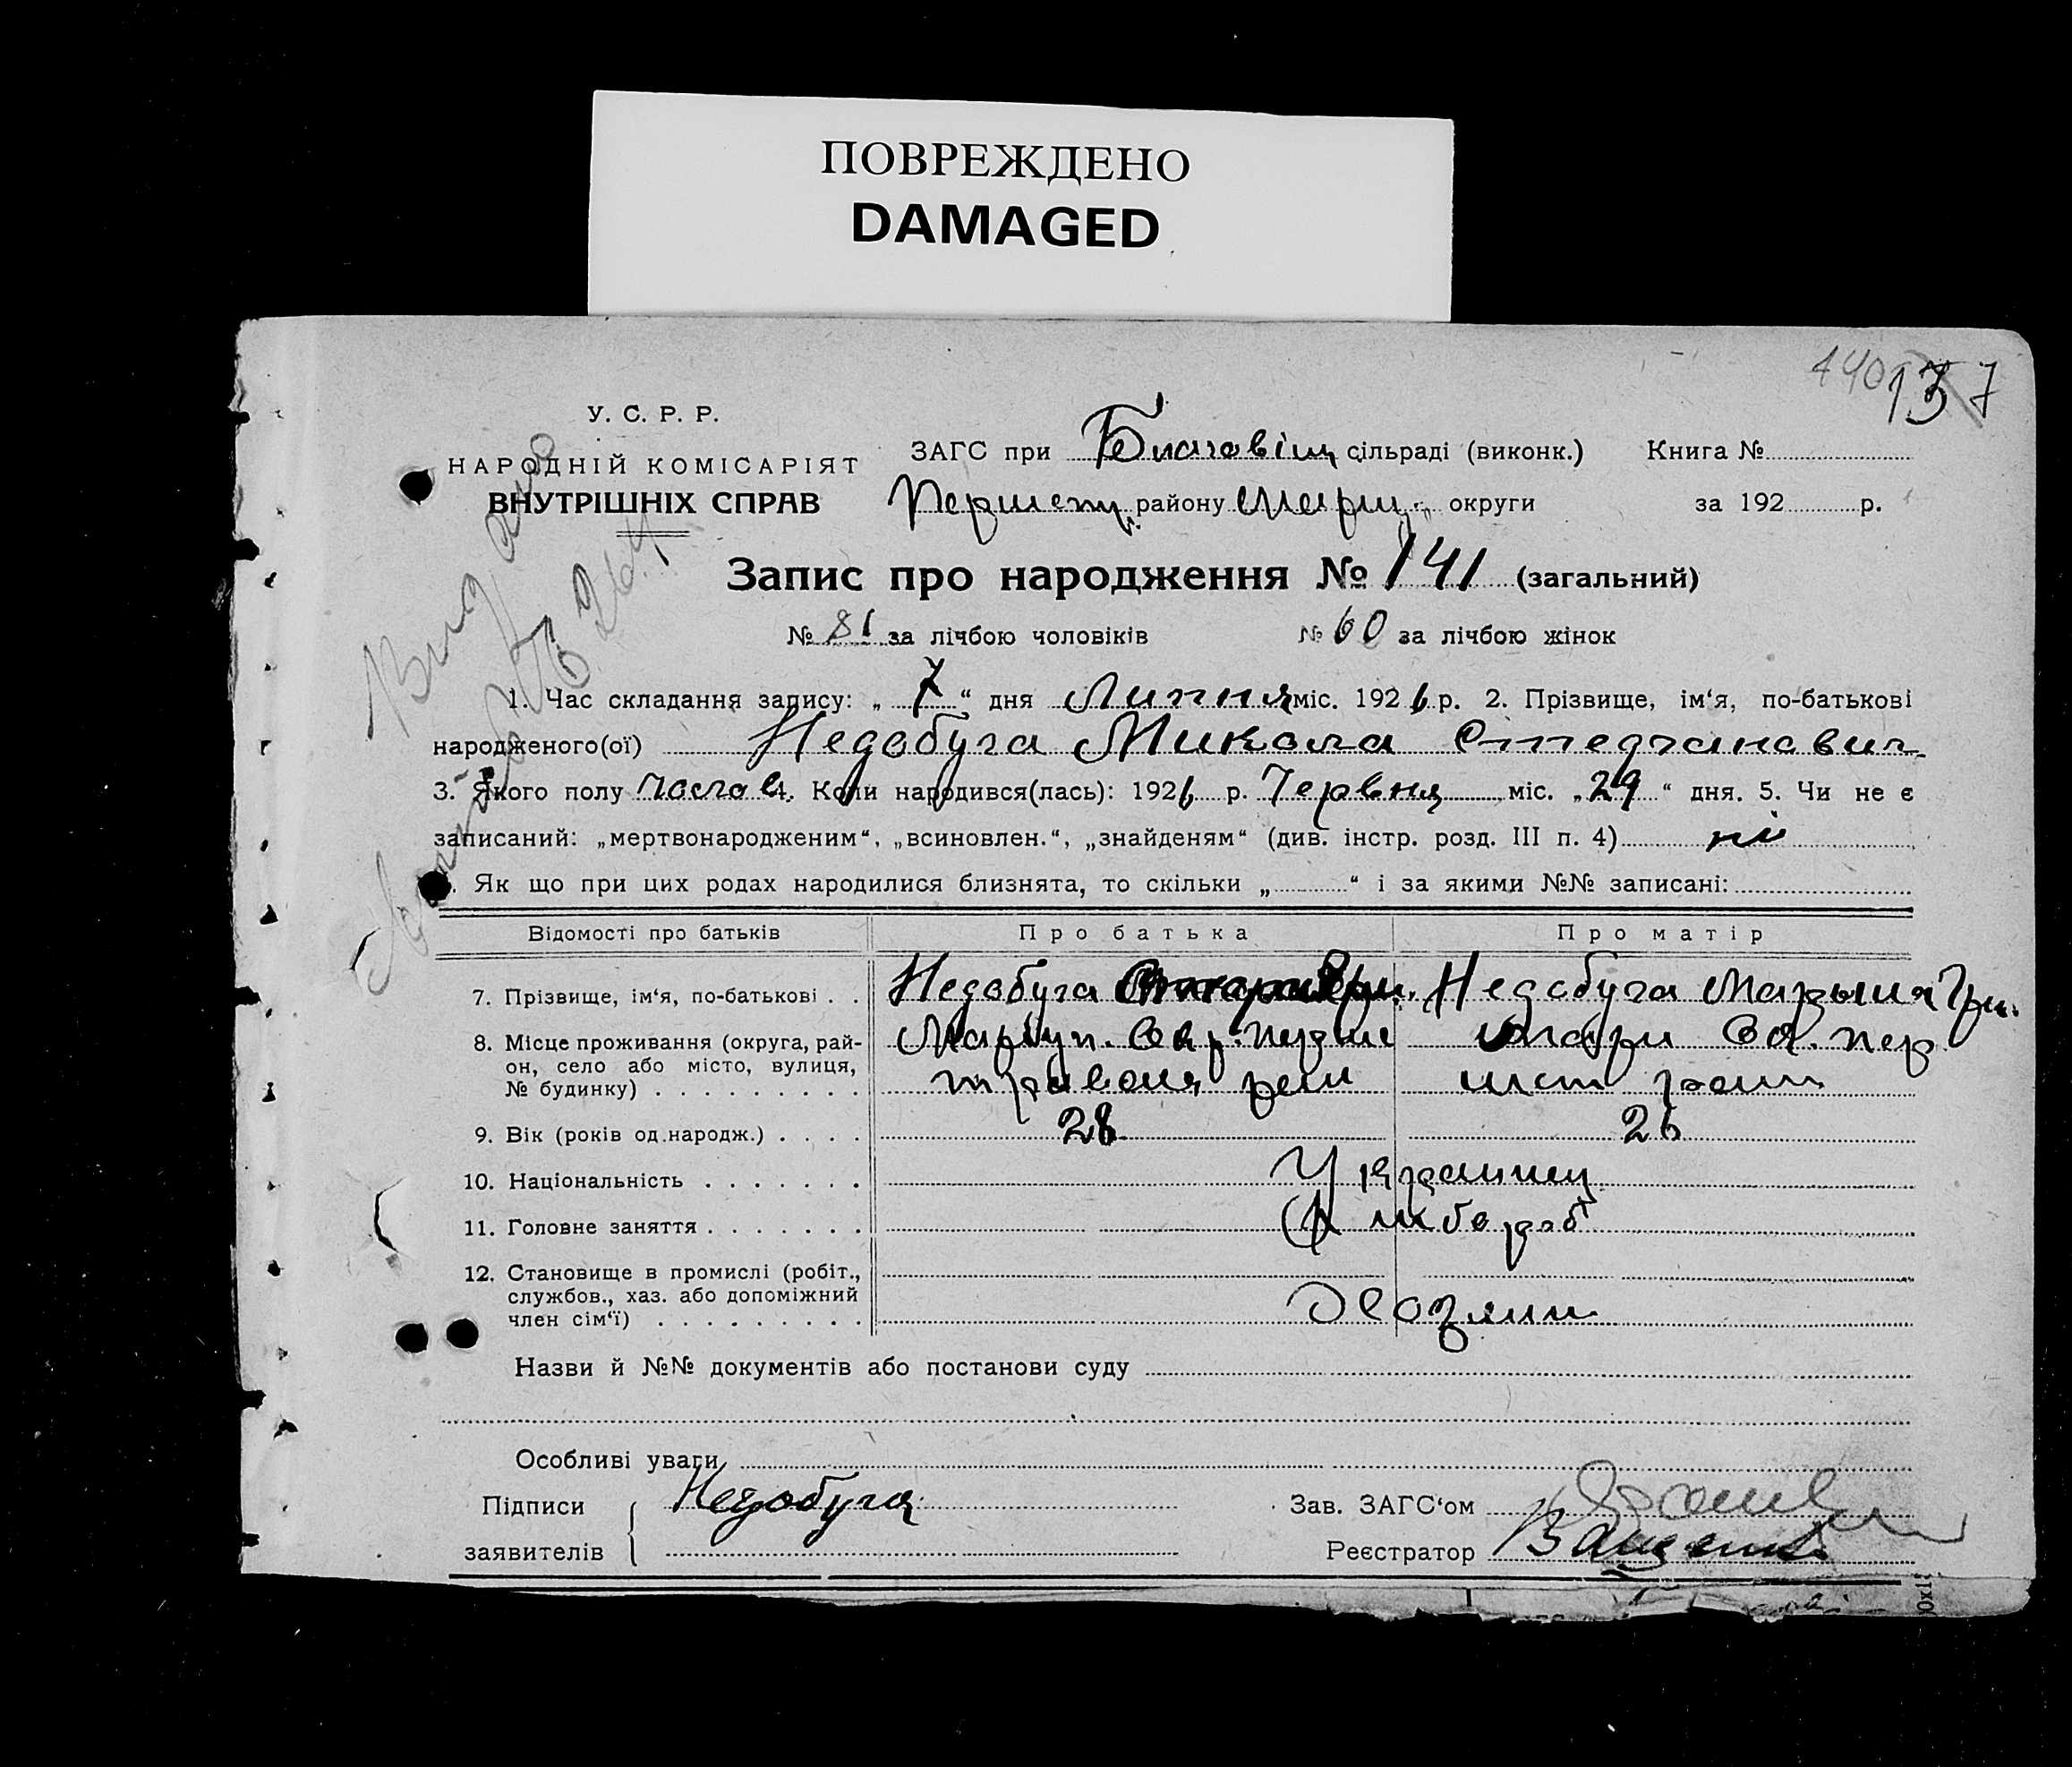 ПОВРЕЖДЕНО
DAMAGED
140 137
У. С. Р. Р.
НАРОДНІЙ КОМІСАРІЯТ
ВНУТРІШНІХ СПРАВ
ЗАГС при Благовіщ сільраді (виконк.) Книга №
Першотр. району Маріу. округи за 192 р.
Запис про народження № 141 (загальний)
№ 81 за лічбою чоловіків № 60 за лічбою жінок
1. Час складання запису: „ 7 “ дня Липня міс. 1926 р. 2. Прізвище, ім‘я, по-батькові
народженого(ої) Недобуга Микола Степанович
3. Якого полу чолов 4. Коли народився(лась): 1926 р. Червня міс. „29“ дня. 5. Чи не є
записаний: „мертвонародженим“, „всиновлен.“, „знайденям“ (див. інстр. розд. III п. 4) ні
. Як що при цих родах народилися близнята, то скільки „ “ і за якими №№ записані:
Відомості про батьків Про батька Про матір
7. Прізвище, ім‘я, по-батькові . . Недобуга Недобуга Марыня Гри.
8. Місце проживання (округа, рай-
он, село або місто, вулиця,
№ будинку) . . . . . . . . .
Маріуп. Окр. Перше Маріу Ок. пер
9. Вік (років од народж.) . . . . 28 26
10. Національність . . . . . . . Украинец
11. Головне заняття . . . . . . . Хлибороб
12. Становище в промислі (робіт.,
службов., хаз. або допоміжний
член сім‘ї) . . . . . . . . .
Хозяин
Назви й №№ документів або постанови суду
Особливі уваги
Підписи Недобуга Зав. ЗАГС‘ом
заявителів Реєстратор Ващенко